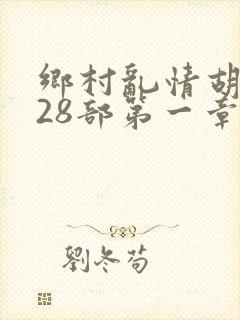 鄉村亂情胡
28部第一章
劉冬苟